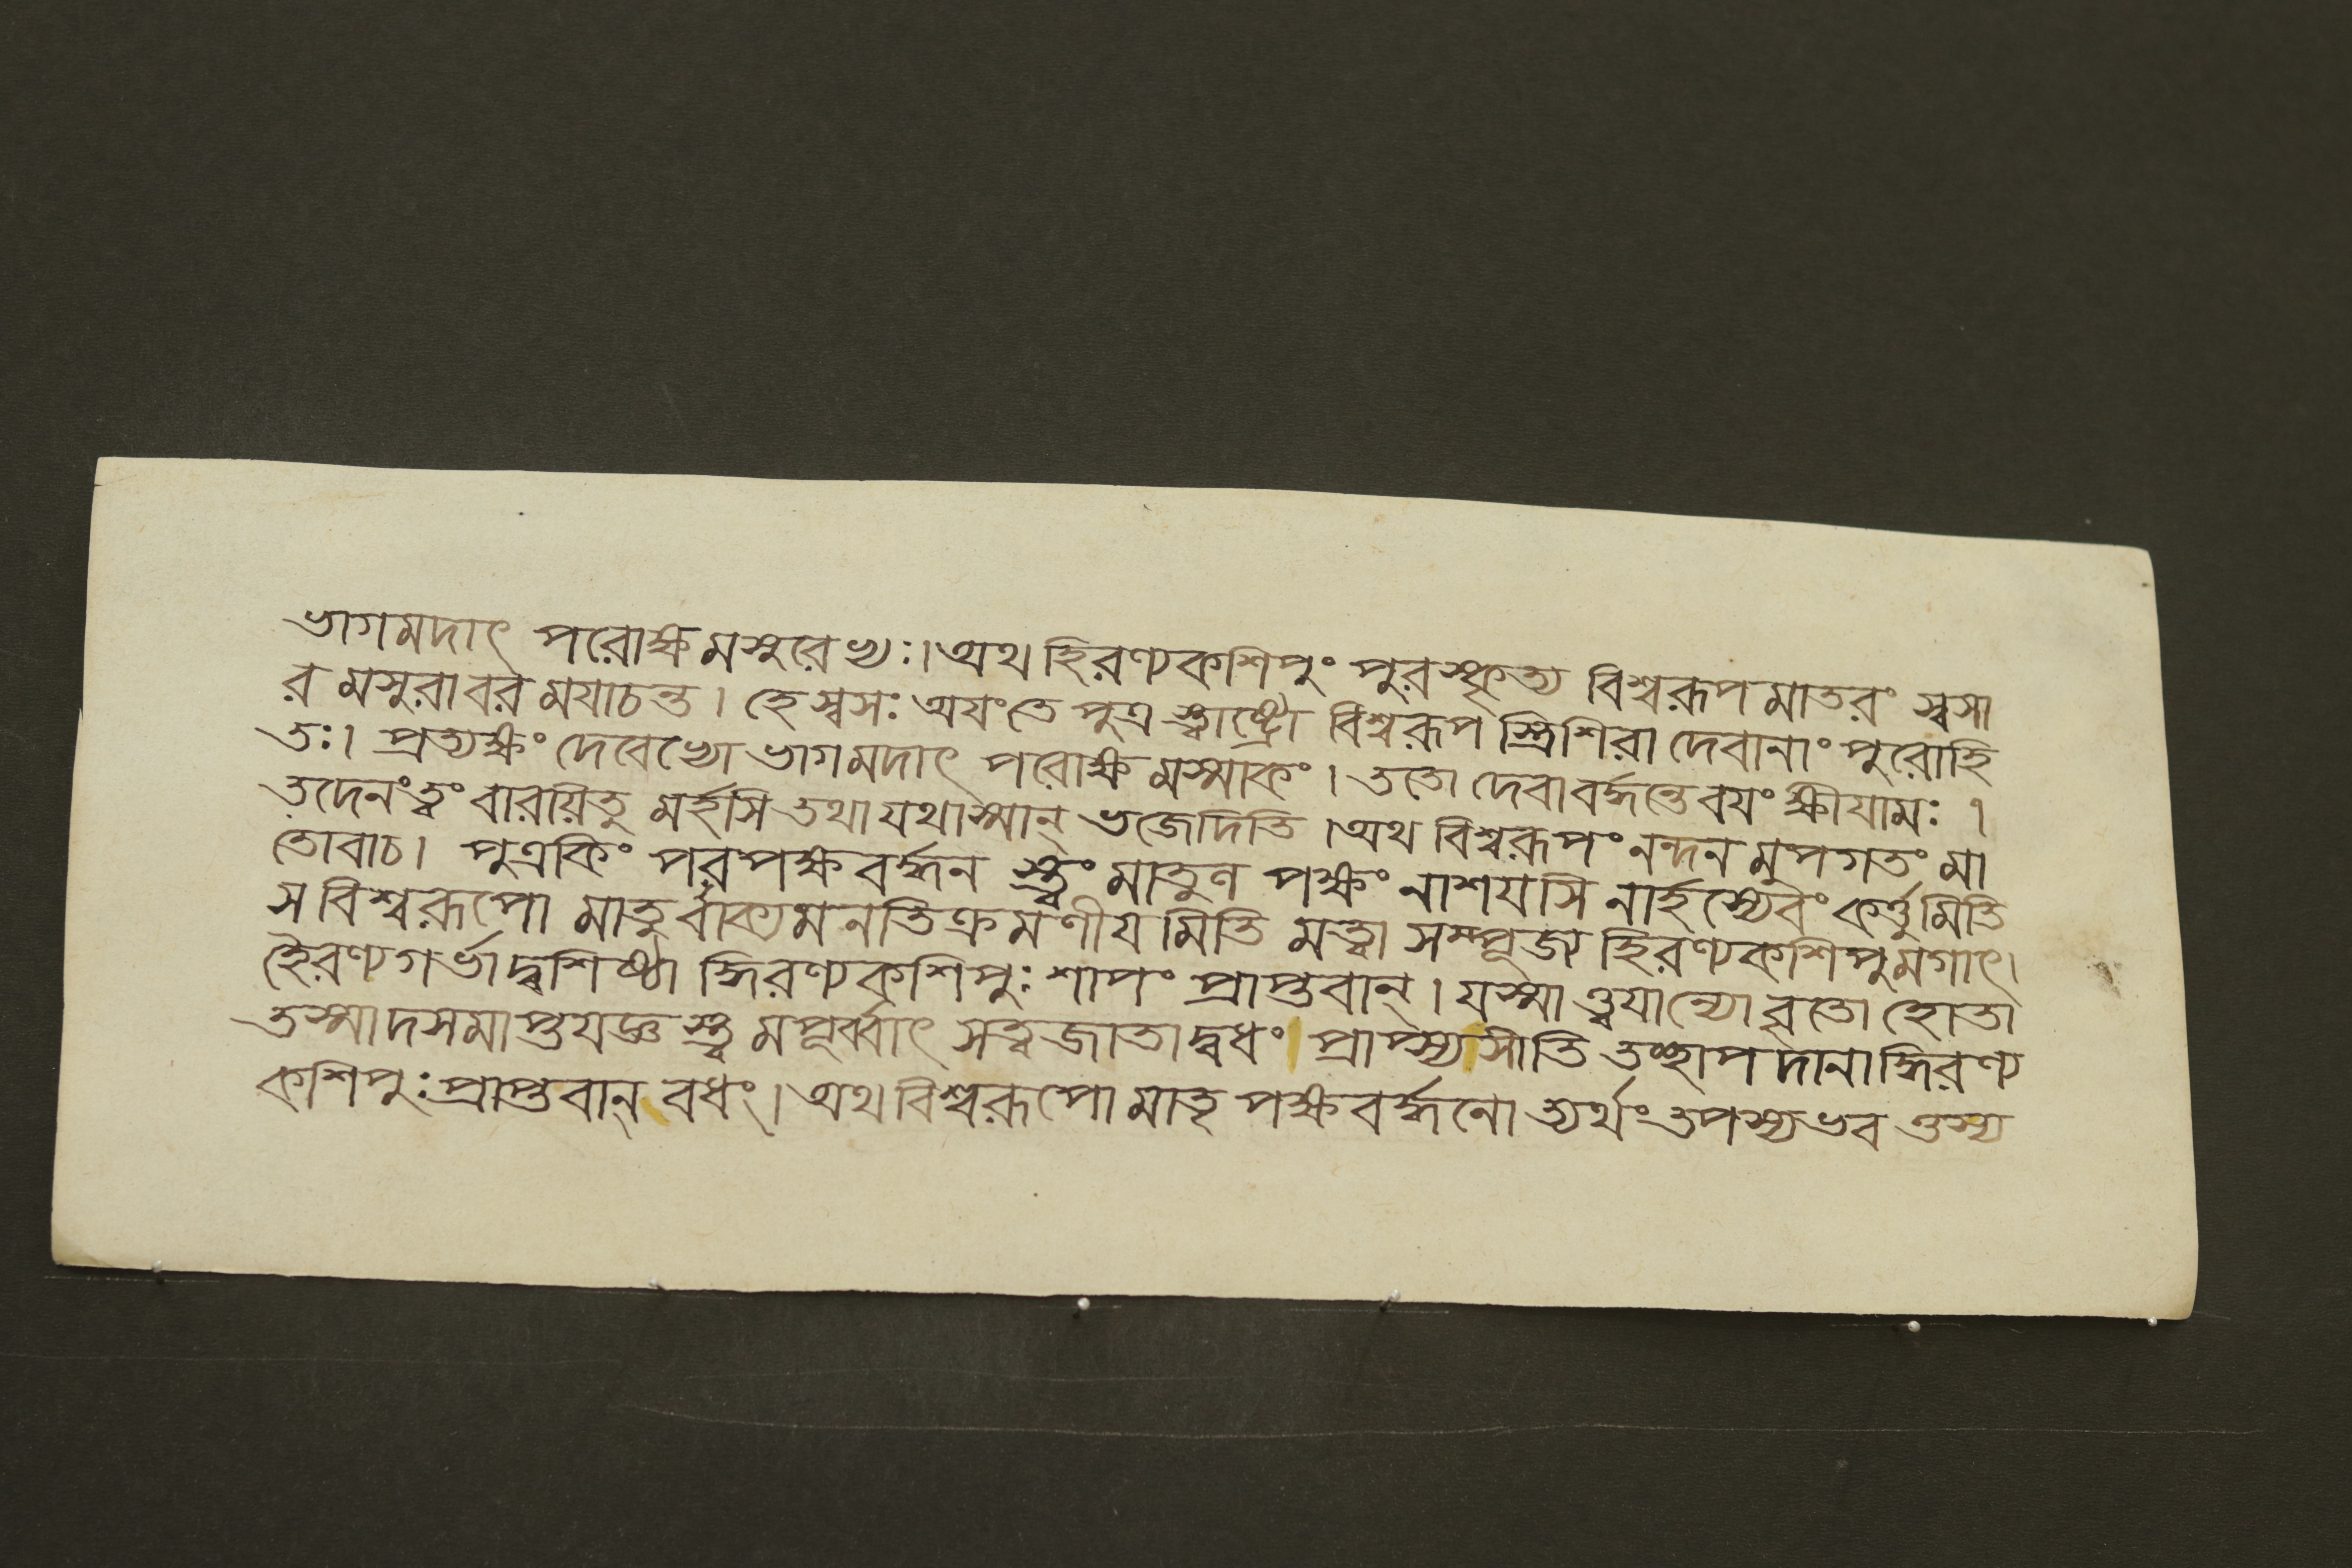 ভাগমদাৎ পরোক্ষমসুরেভ্যঃ।অথ হিরণ্যকশিপুং পুরস্কৃত্য বিশ্বরূপমাতরং স্বসা
রমসুরাবরমযাচন্ত। হে স্বসঃ অযংতে পুত্র স্ত্বাষ্ট্রো বিশ্বরূপ স্ত্রিশিরা দেবানাং পুরোহি
তঃ। প্রত্যক্ষং দেবেভ্যো ভাগমদাৎ পরোক্ষমস্মাকং। ততো দেবাবর্দ্ধন্তেবযং ক্ষীযামঃ ।
তদেনংত্বং বারয়িতু মর্হসি তথা যথাস্মান্ ভজেদিতি ।অথ বিশ্বরূপং নন্দনমুপগতং মা
তোবাচ। পুত্রকিং পরপক্ষবর্দ্ধন স্ত্বং মাতুণ পক্ষং নাশযসি নার্হস্যেবং কর্ত্তুমিতি
স বিশ্বরূপো মাতুর্বাক্যমনতিক্রমণীযমিতি মত্বা সম্পূজ্য হিরণ্যকশিপুমগাৎ।
হৈরণ্যগর্ভাদ্বশিষ্ঠা দ্ধিরণ্যকশিপুঃ শাপং প্রাপ্তবান্। যস্মাত্ত্বযান্যো বৃতো হোতা
তস্মাদসমাপ্তযজ্ঞ স্ত্ব মপূর্ব্বাৎ সত্ত্বজাতাদ্বধং। প্রাপ্স্যসীতি তচ্ছাপদানাদ্ধিরণ্য
কশিপুঃ প্রাপ্তবান্ বধং। অথ বিশ্বরূপো মাতৃপক্ষবর্দ্ধনো ত্যর্থং তপস্যভব ত্তস্য